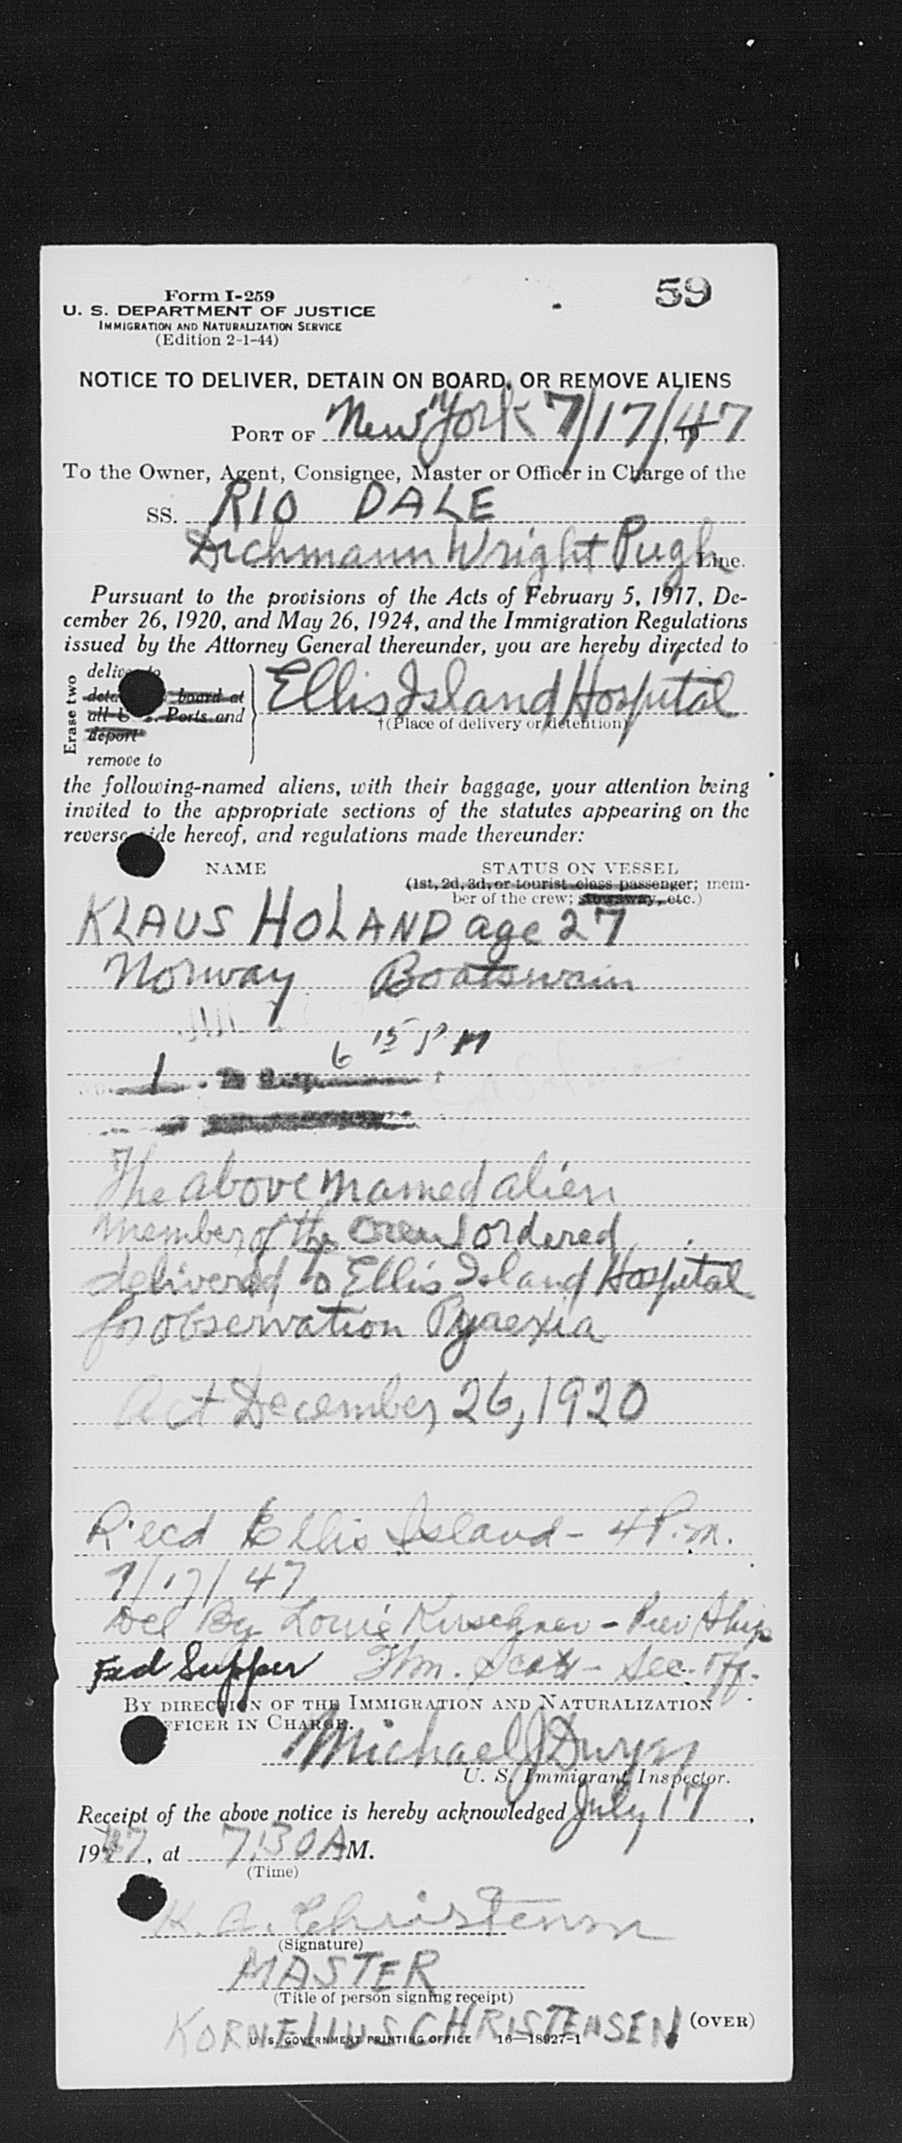 59
Form I-259
U. S. DEPARTMENT OF JUSTICE
IMMIGRATION AND NATURALIZATION SERVICE
(Edition 2-1-44)
NOTICE TO DELIVER, DETAIN ON BOARD, OR REMOVE ALIENS
PORT OF New York 7/17/, 1947
To the Owner, Agent, Consignee, Master or Officer in Charge of the
SS. RIO DALE
Dichmann Wright Pugh Line.
Pursuant to the provisions of the Acts of February 5, 1917, De-
cember 26, 1920, and May 26, 1924, and the Immigration Regulations
issued by the Attorney General thereunder, you are hereby directed to
Erase two
deliver to
board at
all Ports and
deport
remove to
Ellis Island Hospital
†(Place of delivery or detention)
the following-named aliens, with their baggage, your attention being
invited to the appropriate sections of the statutes appearing on the
reverse side hereof, and regulations made thereunder:
NAME STATUS ON VESSEL
(1st, 2d, 3d, or tourist class passenger; mem-
ber of the crew; stowaway, etc.)
KLAUS HOLAND age 27
Norway Boatswain
6 15 PM
1
The above named alien
member of the crew ordered
delivered to Ellis Island Hospital
for observation Pyaexia
Act December 26, 1920
R'ecd Ellis Island - 4 P.m.
7/17/47
Del By Louie - Ship
Fed Supper Scott - Sec. Off.
BY DIRECTION OF THE IMMIGRATION AND NATURALIZATION
OFFICER IN CHARGE.
Michael J Dwyer
U. S. Immigrant Inspector.
Receipt of the above notice is hereby acknowledged July 17,
1947, at 7:30 A M.
(Time)
K. A. Christensen
(Signature)
MASTER
(Title of person signing receipt)
KORNELIUS CHRISTENSEN
(OVER)
U. S. GOVERNMENT PRINTING OFFICE 16—18927-1